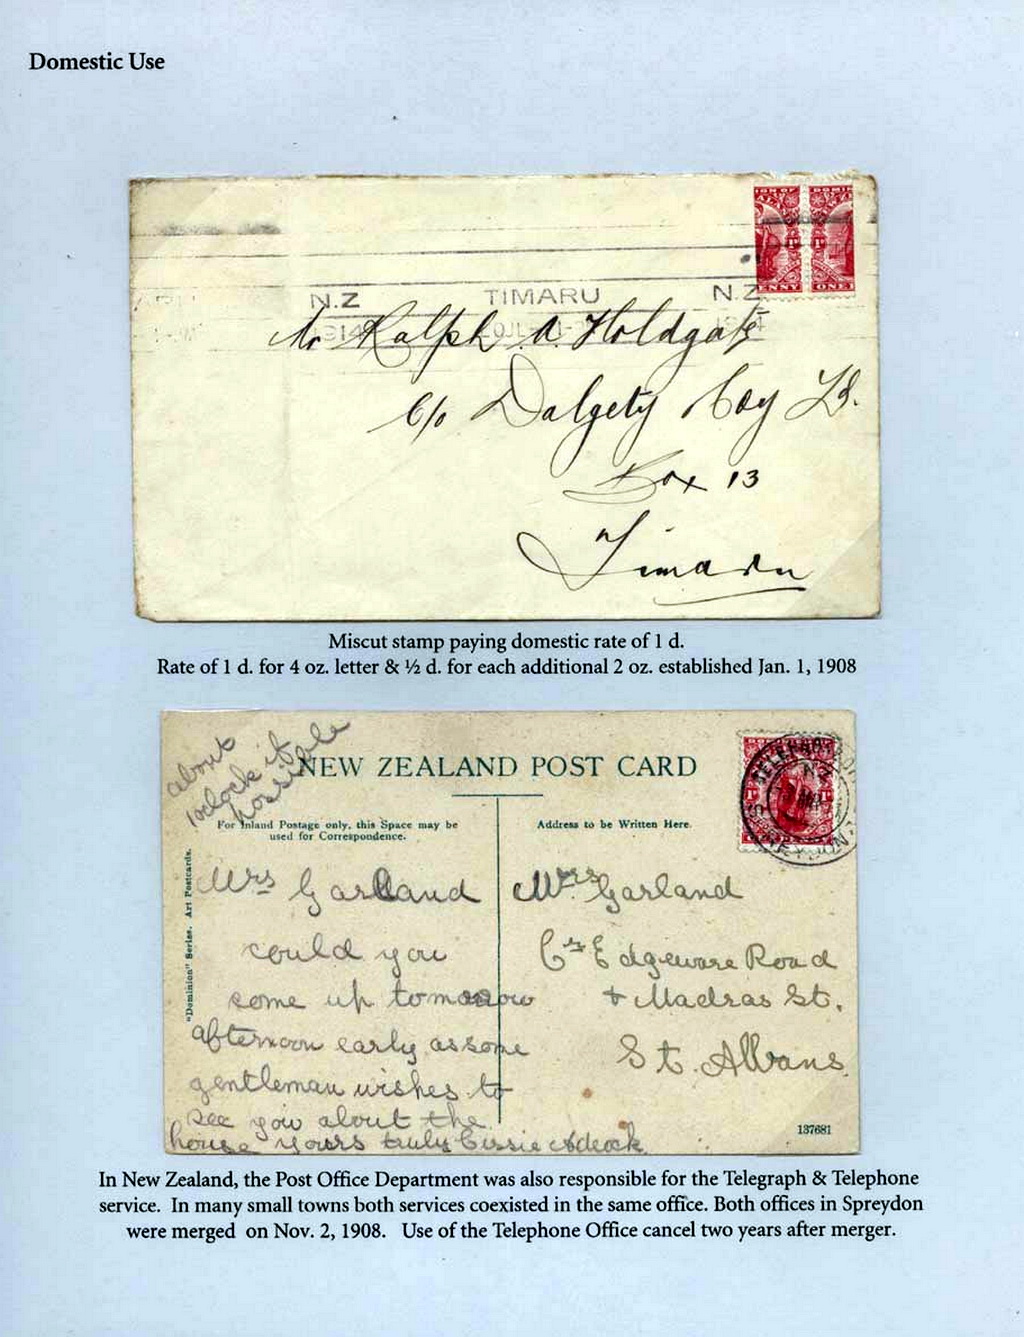 Domestic Use
ION OF DOMIN
N.Z TIMARU N.Z
1914 20JL 1914
ENNY ONE
Mr Ralph A. Holdgate
c/o Dalgety & Coy Ld.
Box 13
Timaru
Miscut stamp paying domestic rate of 1 d.
Rate of 1 d. for 4 oz. letter & ½ d. for each additional 2 oz. established Jan. 1, 1908
about
10 oclock if
possible
NEW ZEALAND POST CARD
For Inland Postage only, this Space may be
used for Correspondence.
Address to be Written Here.
"Dominion" Series. Art Postcards.
Mrs Garland
could you
come up tomorrow
afternoon early as some
gentleman wishes to
see you about the
house yours truly Cissie Adcock
Mrs. Garland
Cnr Edgeware Road
+ Madras St.
St. Albans.
137681
In New Zealand, the Post Office Department was also responsible for the Telegraph & Telephone
service. In many small towns both services coexisted in the same office. Both offices in Spreydon
were merged on Nov. 2, 1908. Use of the Telephone Office cancel two years after merger.